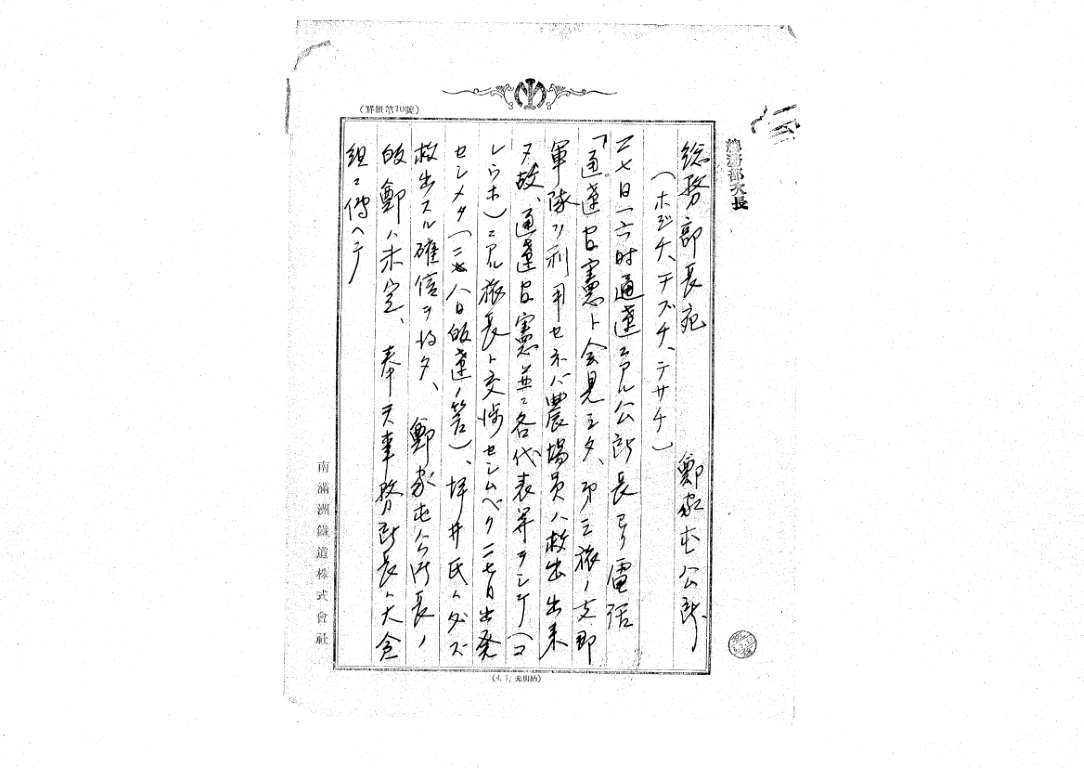 (罫紙第10號)
總務部次長
総務部長宛 鄭家屯公所
(ホジチ、チズチ、テサチ)
二七日一六时通遼ニアル公所長ヨリ電話
「通遼官憲ト会見シタ、第三旅ノ支那
軍隊ヲ利用セネバ農場員ハ救出出来
ヌ故、通遼官憲並ニ各代表等ヲシテ(コ
レウホ)ニアル旅長ト交渉セシムベク二七日出発
セシメタ(二八日皈遼ノ筈)、坪井氏ハダズ
救出スル確信ヲ持タ、鄭家屯公所長ノ
皈鄭ハ未定、奉天事務所長、大倉
組ニ傳ヘテ
南滿洲鐵道株式會社